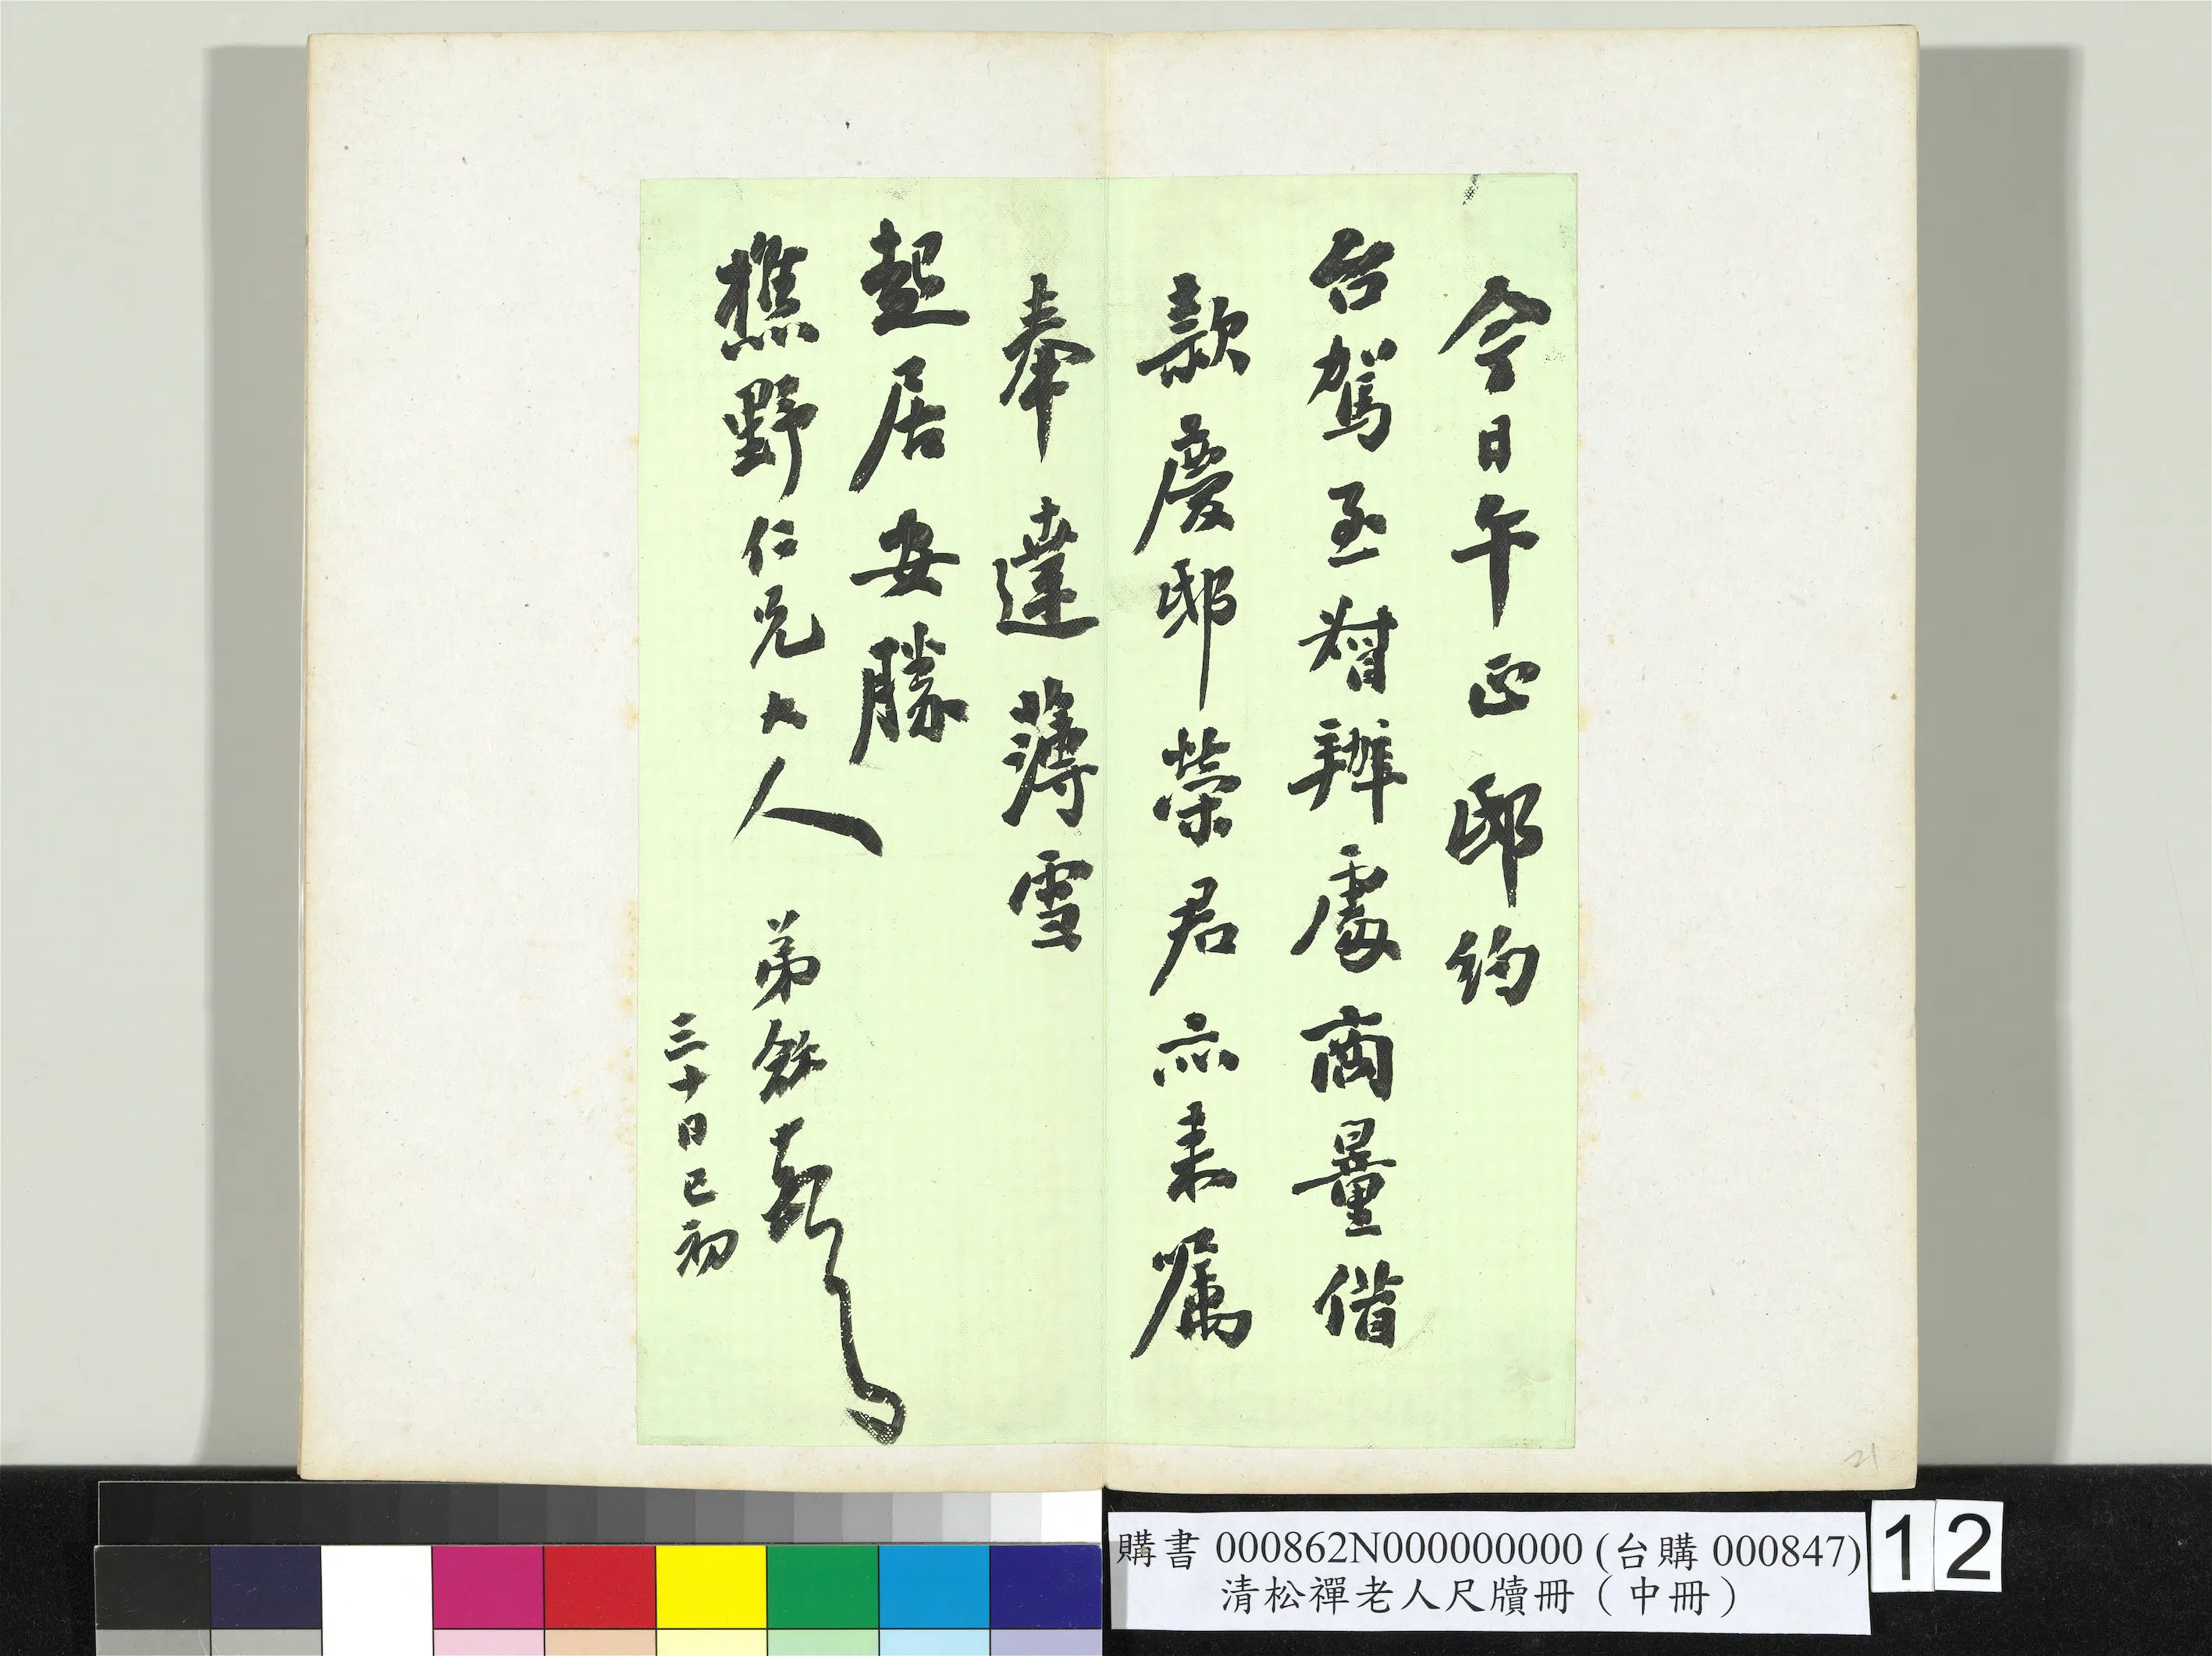 今日午正邸約
台駕至督辦處商量借
款慶邸榮君亦来嘱
奉達薄雪
起居安勝
樵野仁兄大人 弟龢頓首
三十日巳初
21
購書 000862N000000000 (台購 000847)
清松禪老人尺牘冊（中冊）
12